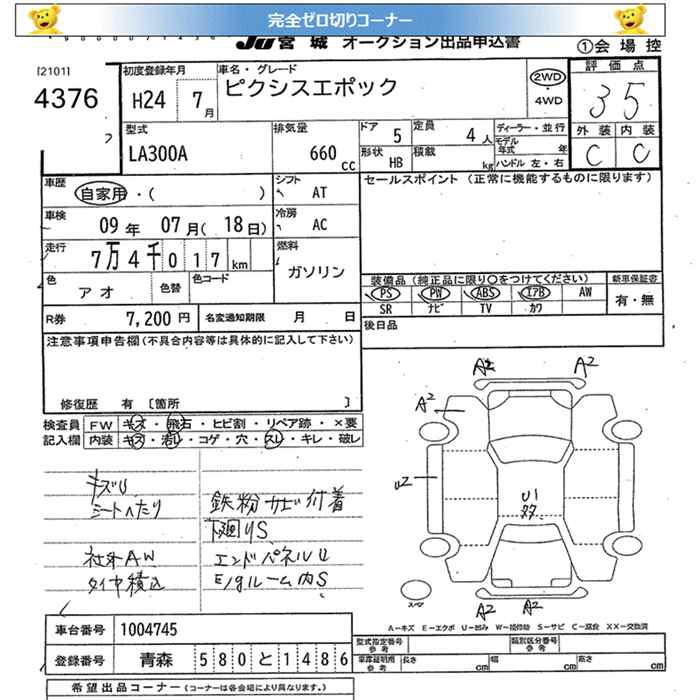 完全ゼロ切りコーナー
JU宮城 オークション出品申込書 ①会場控
[2101]
4376
初度登録年月 車名・グレード 評価点
H24 7月 ピクシスエポック 2WD・4WD 3.5
型式 排気量 ドア 5 定員 4人 ディーラー・並行 外装 内装
LA300A 660cc 形状 HB 積載 kg モデル年式 年 ハンドル 左・右 C C
車歴 自家用・( ) シフト AT セールスポイント (正常に機能するものに限ります)
車検 09年 07月(18日) 冷房 AC
走行 7万4千017km 燃料 ガソリン
色 アオ 色替 色コード 装備品(純正品に限り○をつけてください) 新車保証書
PS PW ABS エアB AW 有・無
SR ナビ TV カワ
R券 7,200円 名変通知期限 月 日 後日品
注意事項申告欄(不具合内容等は具体的に記入して下さい)
修復歴 有 [箇所 ]
検査員 FW キズ・飛石・ヒビ割・リペア跡・×要
記入欄 内装 キズ・汚レ・コゲ・穴・スレ・キレ・破レ
キズU
シートへたり 鉄粉 サビ付着
下廻りS
社外AW エンドパネルU
タイヤ積込 E/gルーム内S
A2 A2
A2
U2
U1
タタ
スペア A2 A2
A-キズ E-エクボ U-凹み W-補修跡 S-サビ C-腐食 XX-交換済
車台番号 1004745
型式指定番号 参考 類別区分番号 参考
登録番号 青森 580と1486
車庫証明用 参考 長さ cm 幅 cm 高さ cm
希望出品コーナー(コーナーは各会場により異なります。)